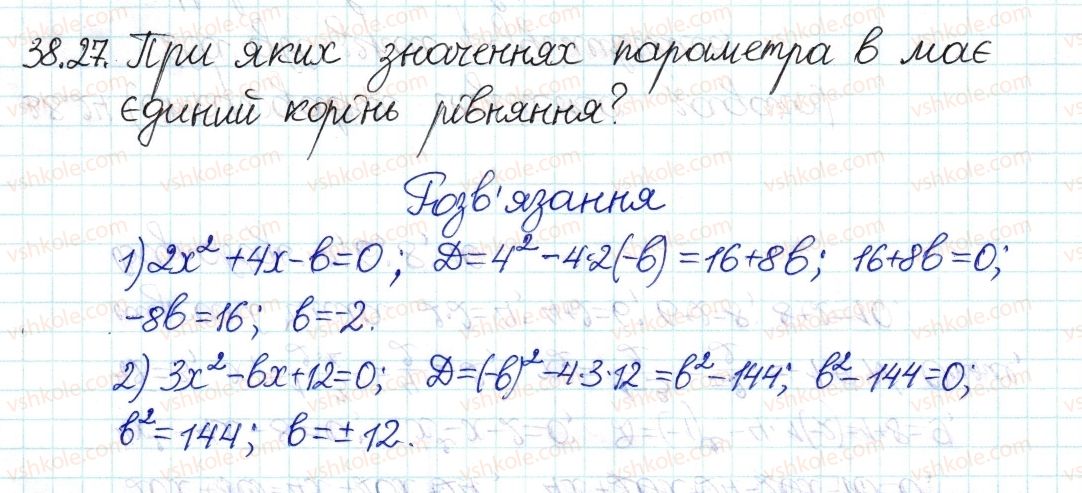 38.27. При яких значеннях параметра в має
єдиний корінь рівняння?
Розв'язання
1) 2x² + 4x - в = 0; D = 4² - 4·2(-в) = 16 + 8в; 16 + 8в = 0;
-8в = 16; в = -2.
2) 3x² - вx + 12 = 0; D = (-в)² - 4·3·12 = в² - 144; в² - 144 = 0;
в² = 144; в = ± 12.